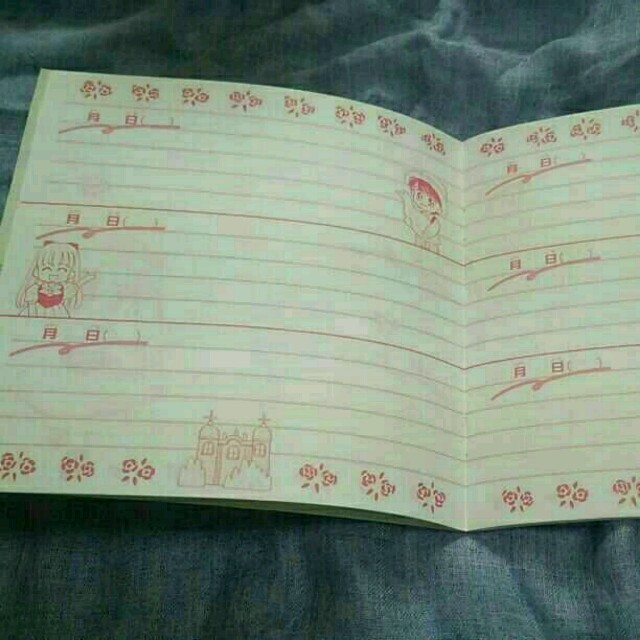 月 日( )
月 日( )
月 日( )
月 日( )
月 日( )
月 日( )